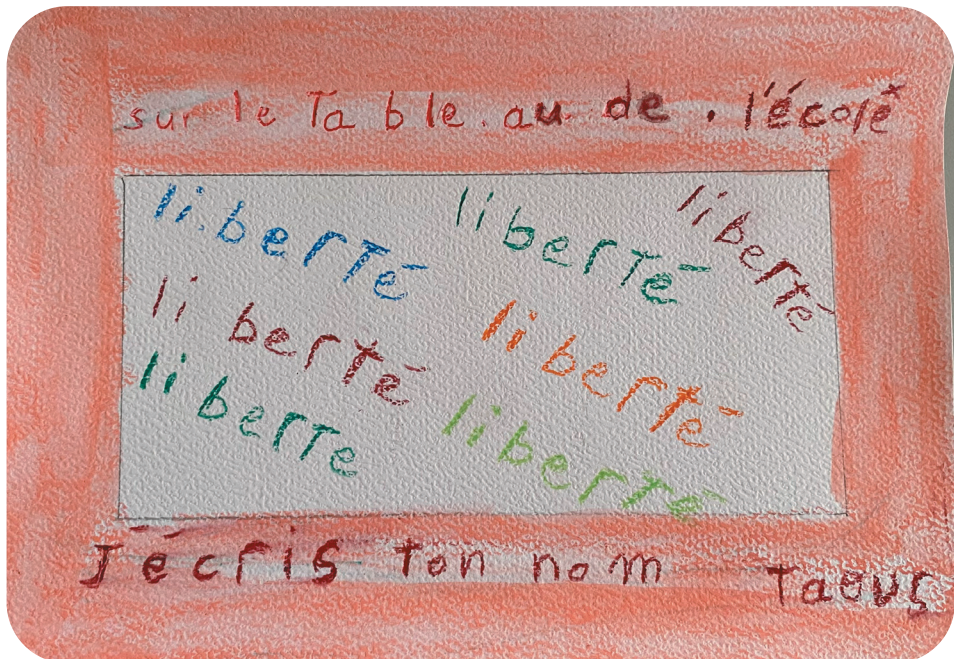 sur le Table.au de . l'école
liberté
liberté
liberté
li berté
liberté
liberte
liberté
J'écris ton nom
Taous